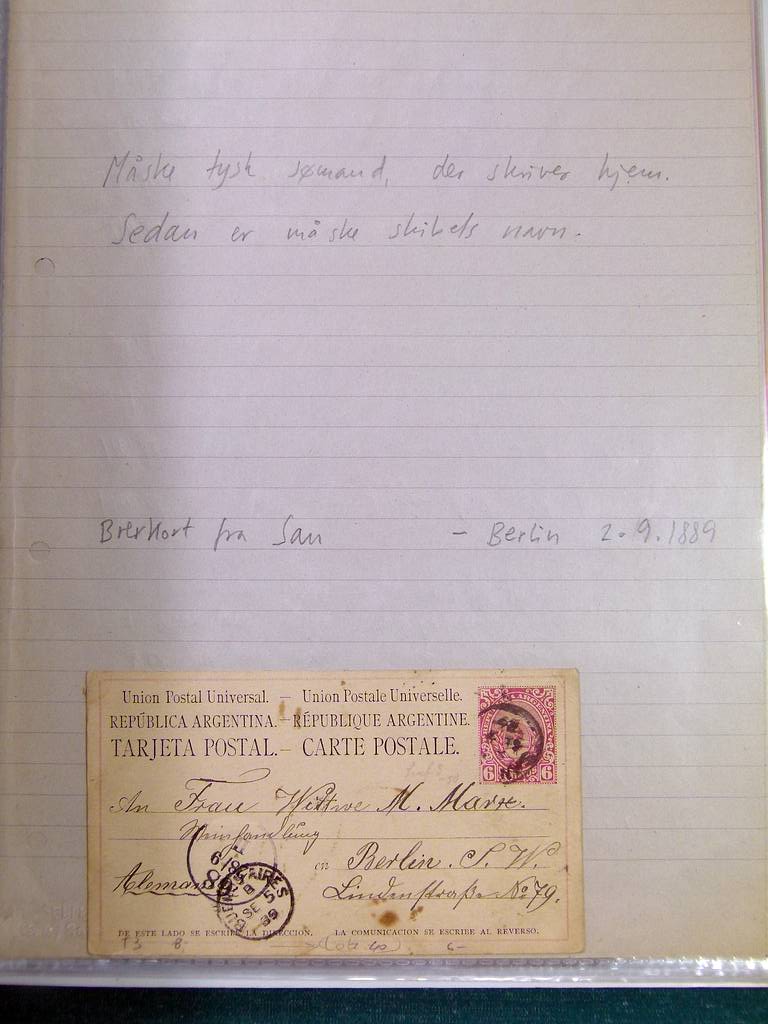 Måske tysk sømand, der skriver hjem.
Sedan er måske skibets navn.
Brevkort fra San - Berlin 2.9.1889
Union Postal Universal. — Union Postale Universelle.
REPÚBLICA ARGENTINA. — RÉPUBLIQUE ARGENTINE.
TARJETA POSTAL. — CARTE POSTALE.
6 6
An Frau Wittwe M. Marre.
Weinhandlung
en Berlin. S. W.
Alemania
Lindenstraße No 79.
BUENOS AIRES
SE 5
89
DE ESTE LADO SE ESCRIBE LA DIRECCION. LA COMUNICACION SE ESCRIBE AL REVERSO.